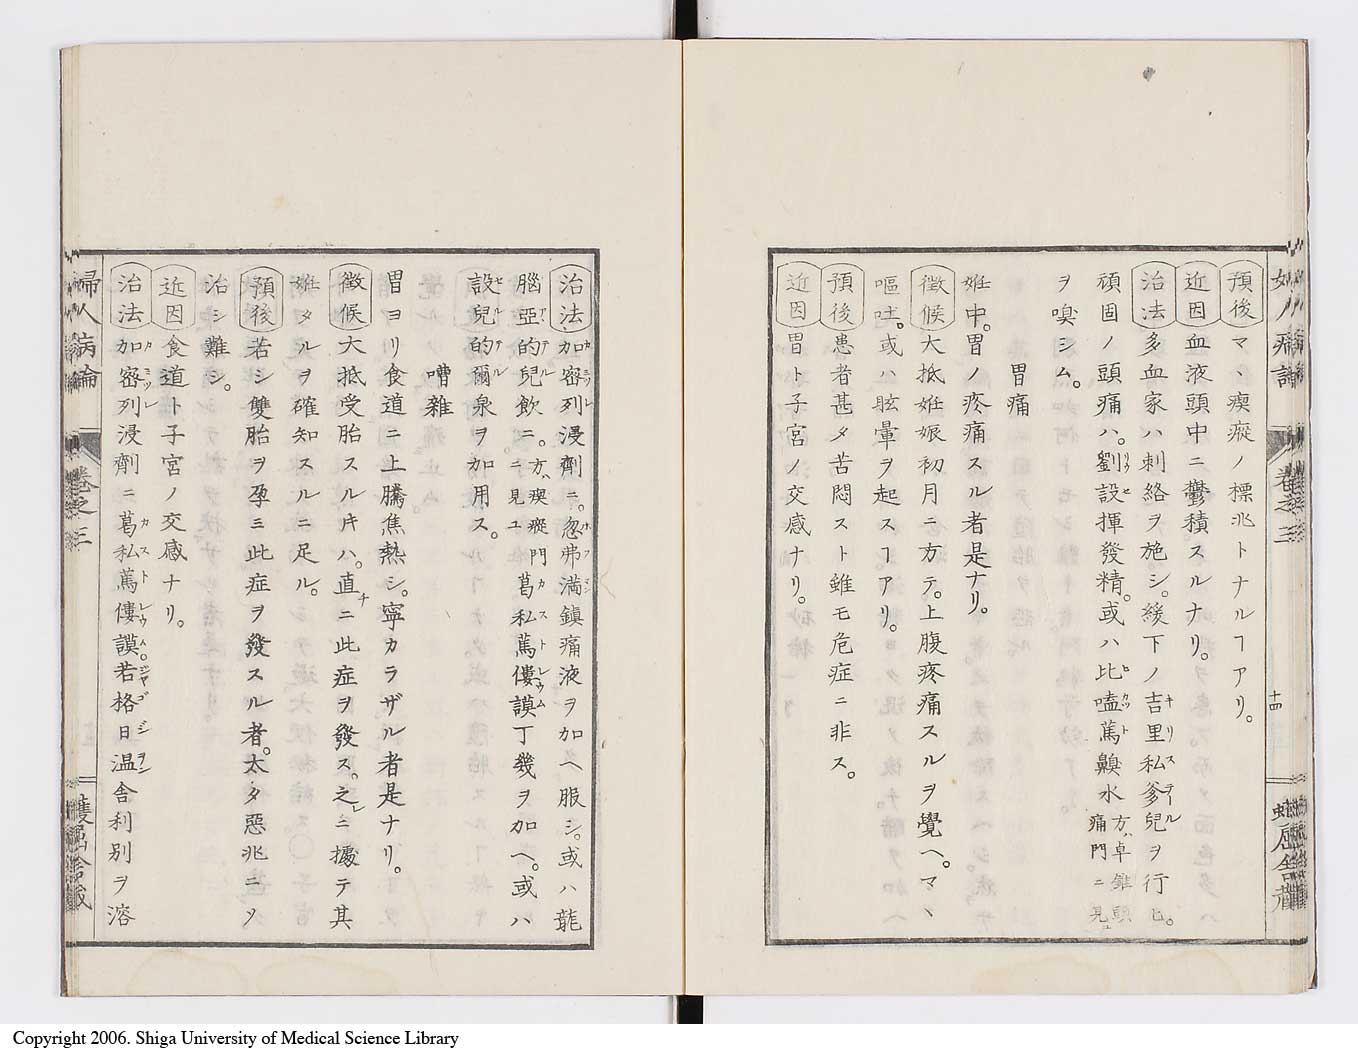 預後マヽ瘈瘲ノ標兆トナルヿアリ。
近因血液頭中ニ鬱積スルナリ。
治法多血家ハ刺絡ヲ施シ。緩下ノ吉里私爹兒ヲ行ヒ。
頑固ノ頭痛ハ。劉設揮發精。或ハ比嗑蔫齅水方ハ卓錐頭痛門ニ見ユ
ヲ嗅シム。
胃痛
姙中。胃ノ疼痛スル者是ナリ。
徴候大抵姙娠初月ニ方テ。上腹疼痛スルヲ覺ヘ。マヽ
嘔吐。或ハ眩暈ヲ起スヿアリ。
預後患者甚タ苦悶スト雖モ危症ニ非ス。
近因胃ト子宮ノ交感ナリ。
十四
婦人病論
卷之三
治法加密列浸劑ニ。忽弗満鎮痛液ヲ加ヘ服シ。或ハ龍
腦亞的兒飲ニ。方ハ瘈瘲門ニ見ユ葛私蔫僂謨丁幾ヲ加ヘ。或ハ
設兒的爾泉ヲ加用ス。
嘈雜
胃ヨリ食道ニ上騰焦熱シ。寧カラザル者是ナリ。
徴候大抵受胎スル片ハ。直ニ此症ヲ發ス。之ニ據テ其
姙タルヲ確知スルニ足ル。
預後若シ雙胎ヲ孕ミ此症ヲ發スル者。太タ惡兆ニメ
治シ難シ。
近因食道ト子宮ノ交感ナリ。
治法加密列浸劑ニ葛私蔫僂謨。若格日温舎利別ヲ溶
婦人病論
卷之三